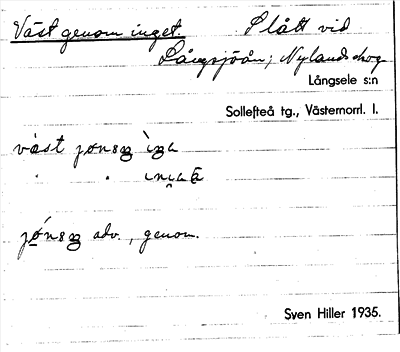 Väst genom inget. Slått vid
Långsjöån; Nylandskog
Långsele s:n
Sollefteå tg., Västernorrl. l.
väst
adv., genom.
Sven Hiller 1935.